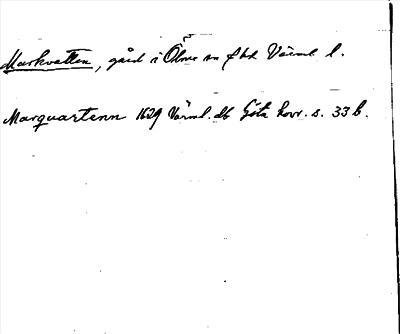 Markvatten, gård i Ölme sn f.hd Värml l.
Marquartenn 1629 Värml. db Göta hovr. s. 33 b.